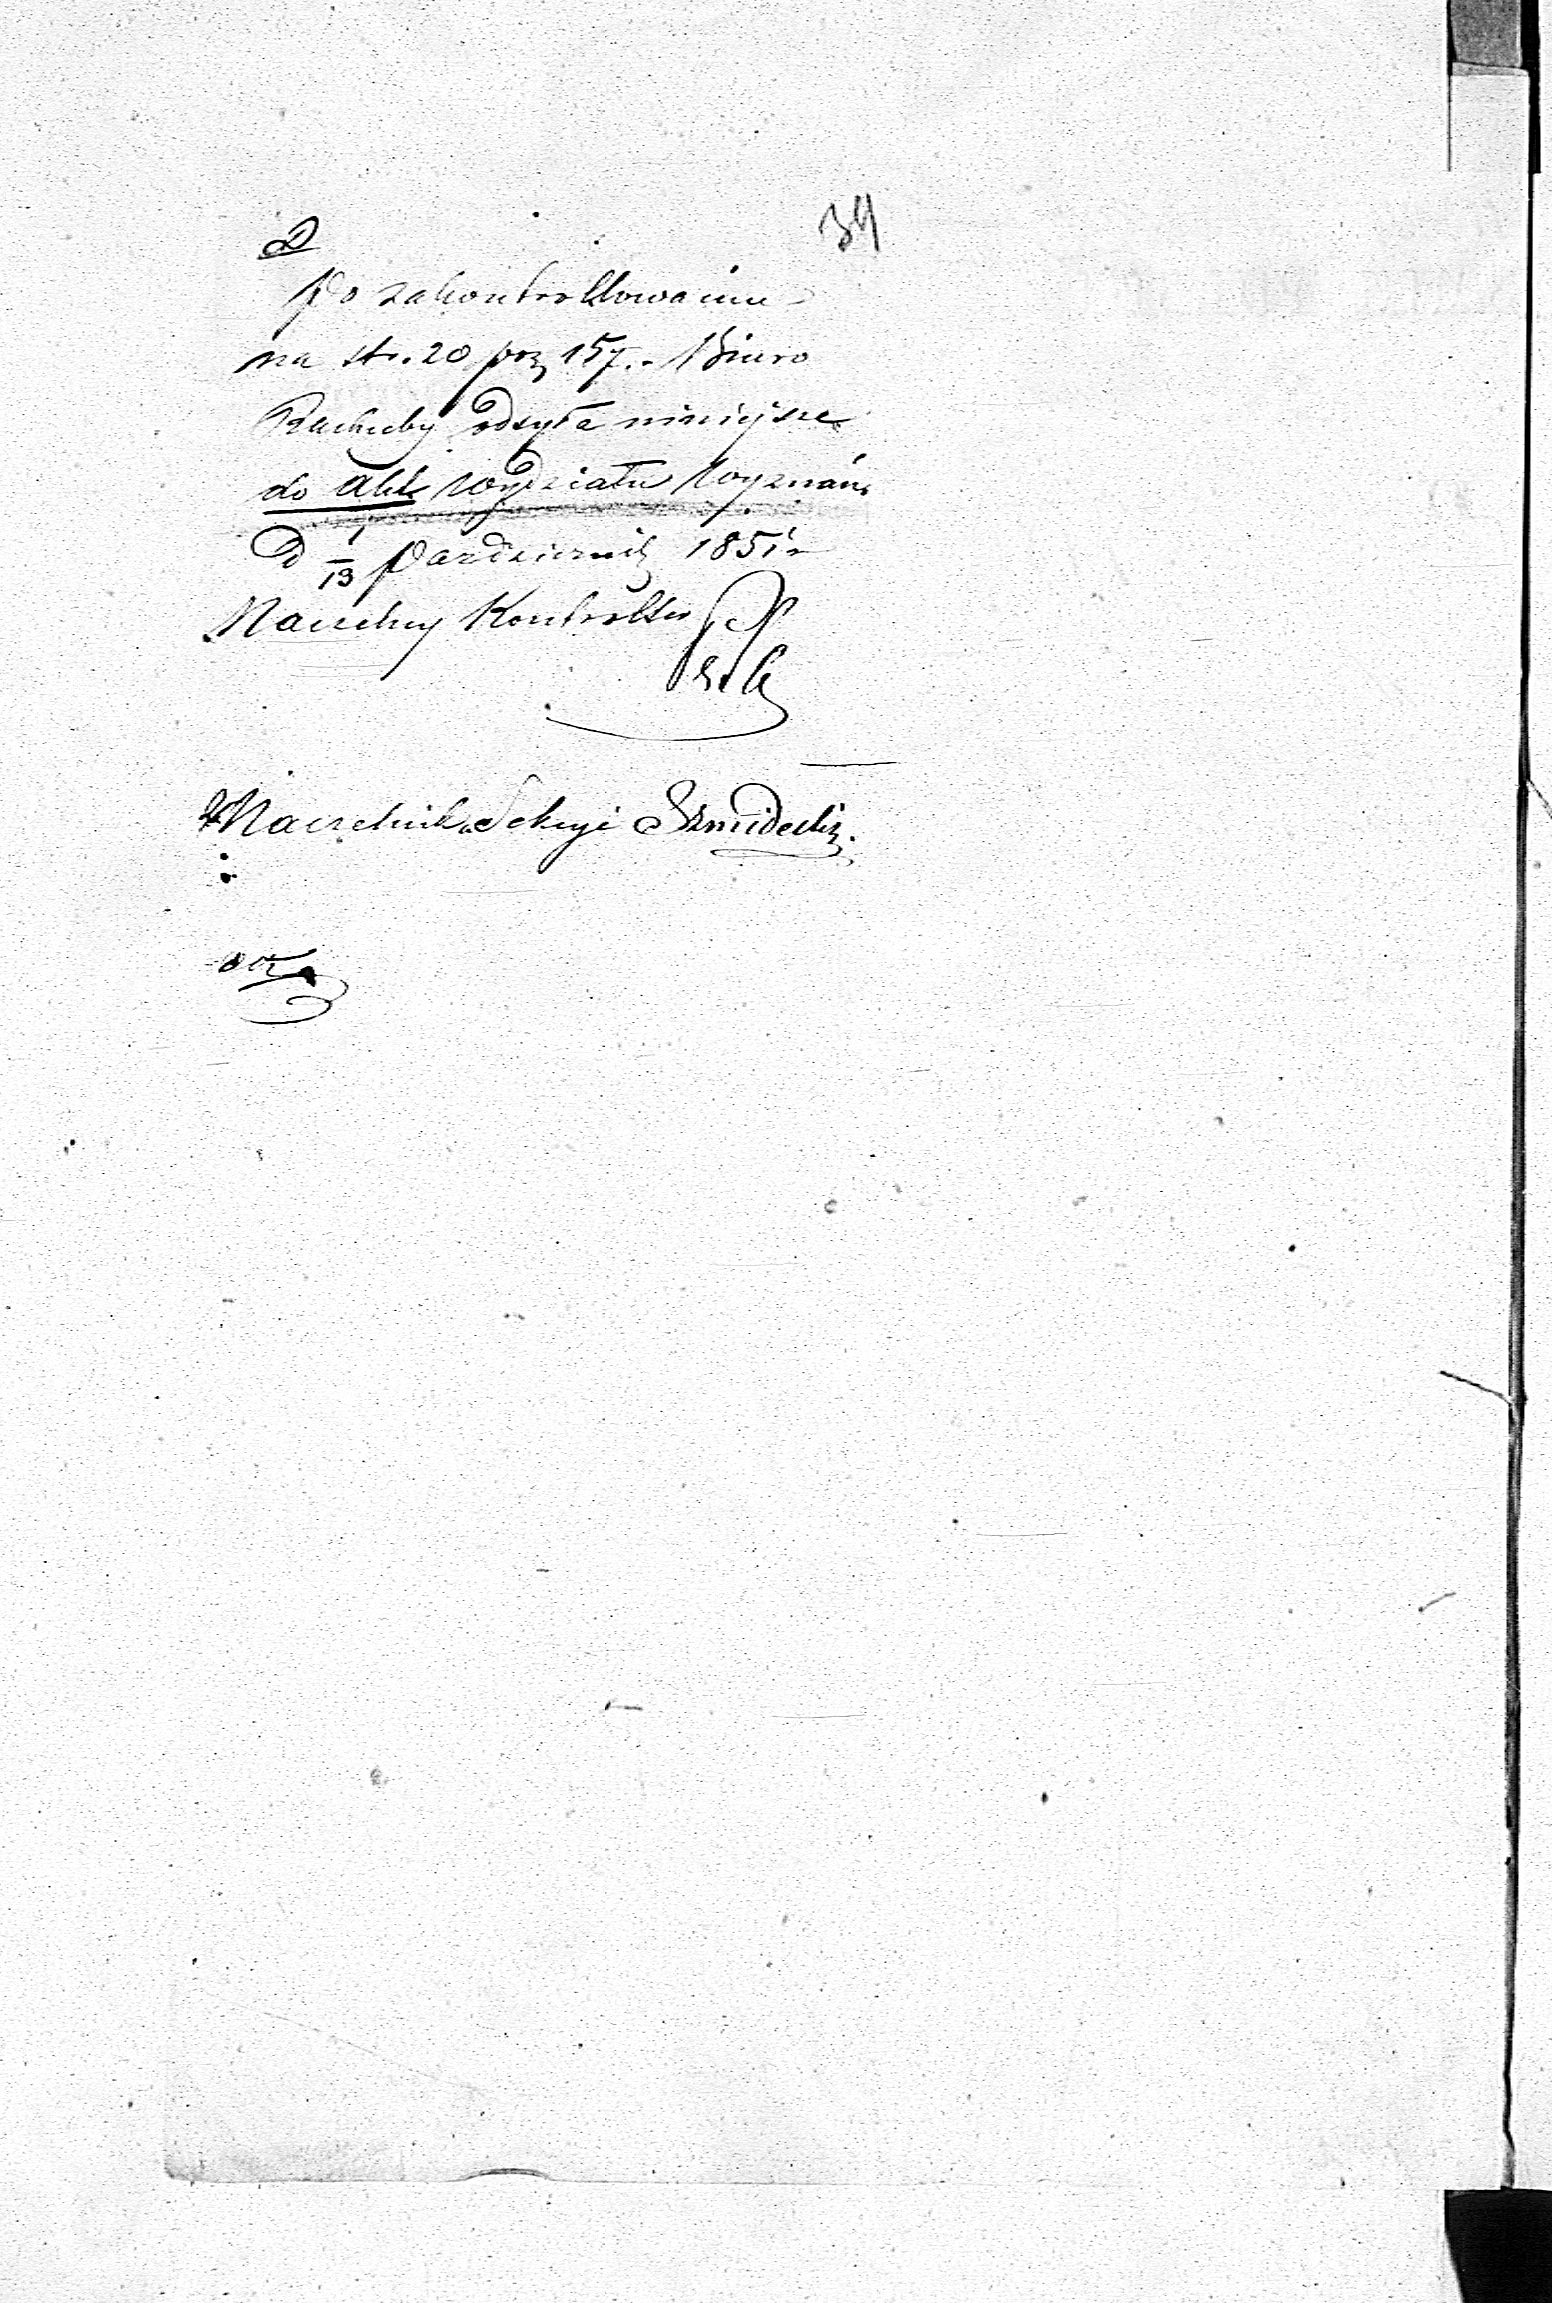 34
D
Po zakontrollowaniu
na str. 20 poz 157. Biuro
Rachuby odsyła niniejsze
do Akt Wydziału Wyznań
D 1/13 Październik 1851 r
Naczelny Kontroller
Naczelnik Sekcyi